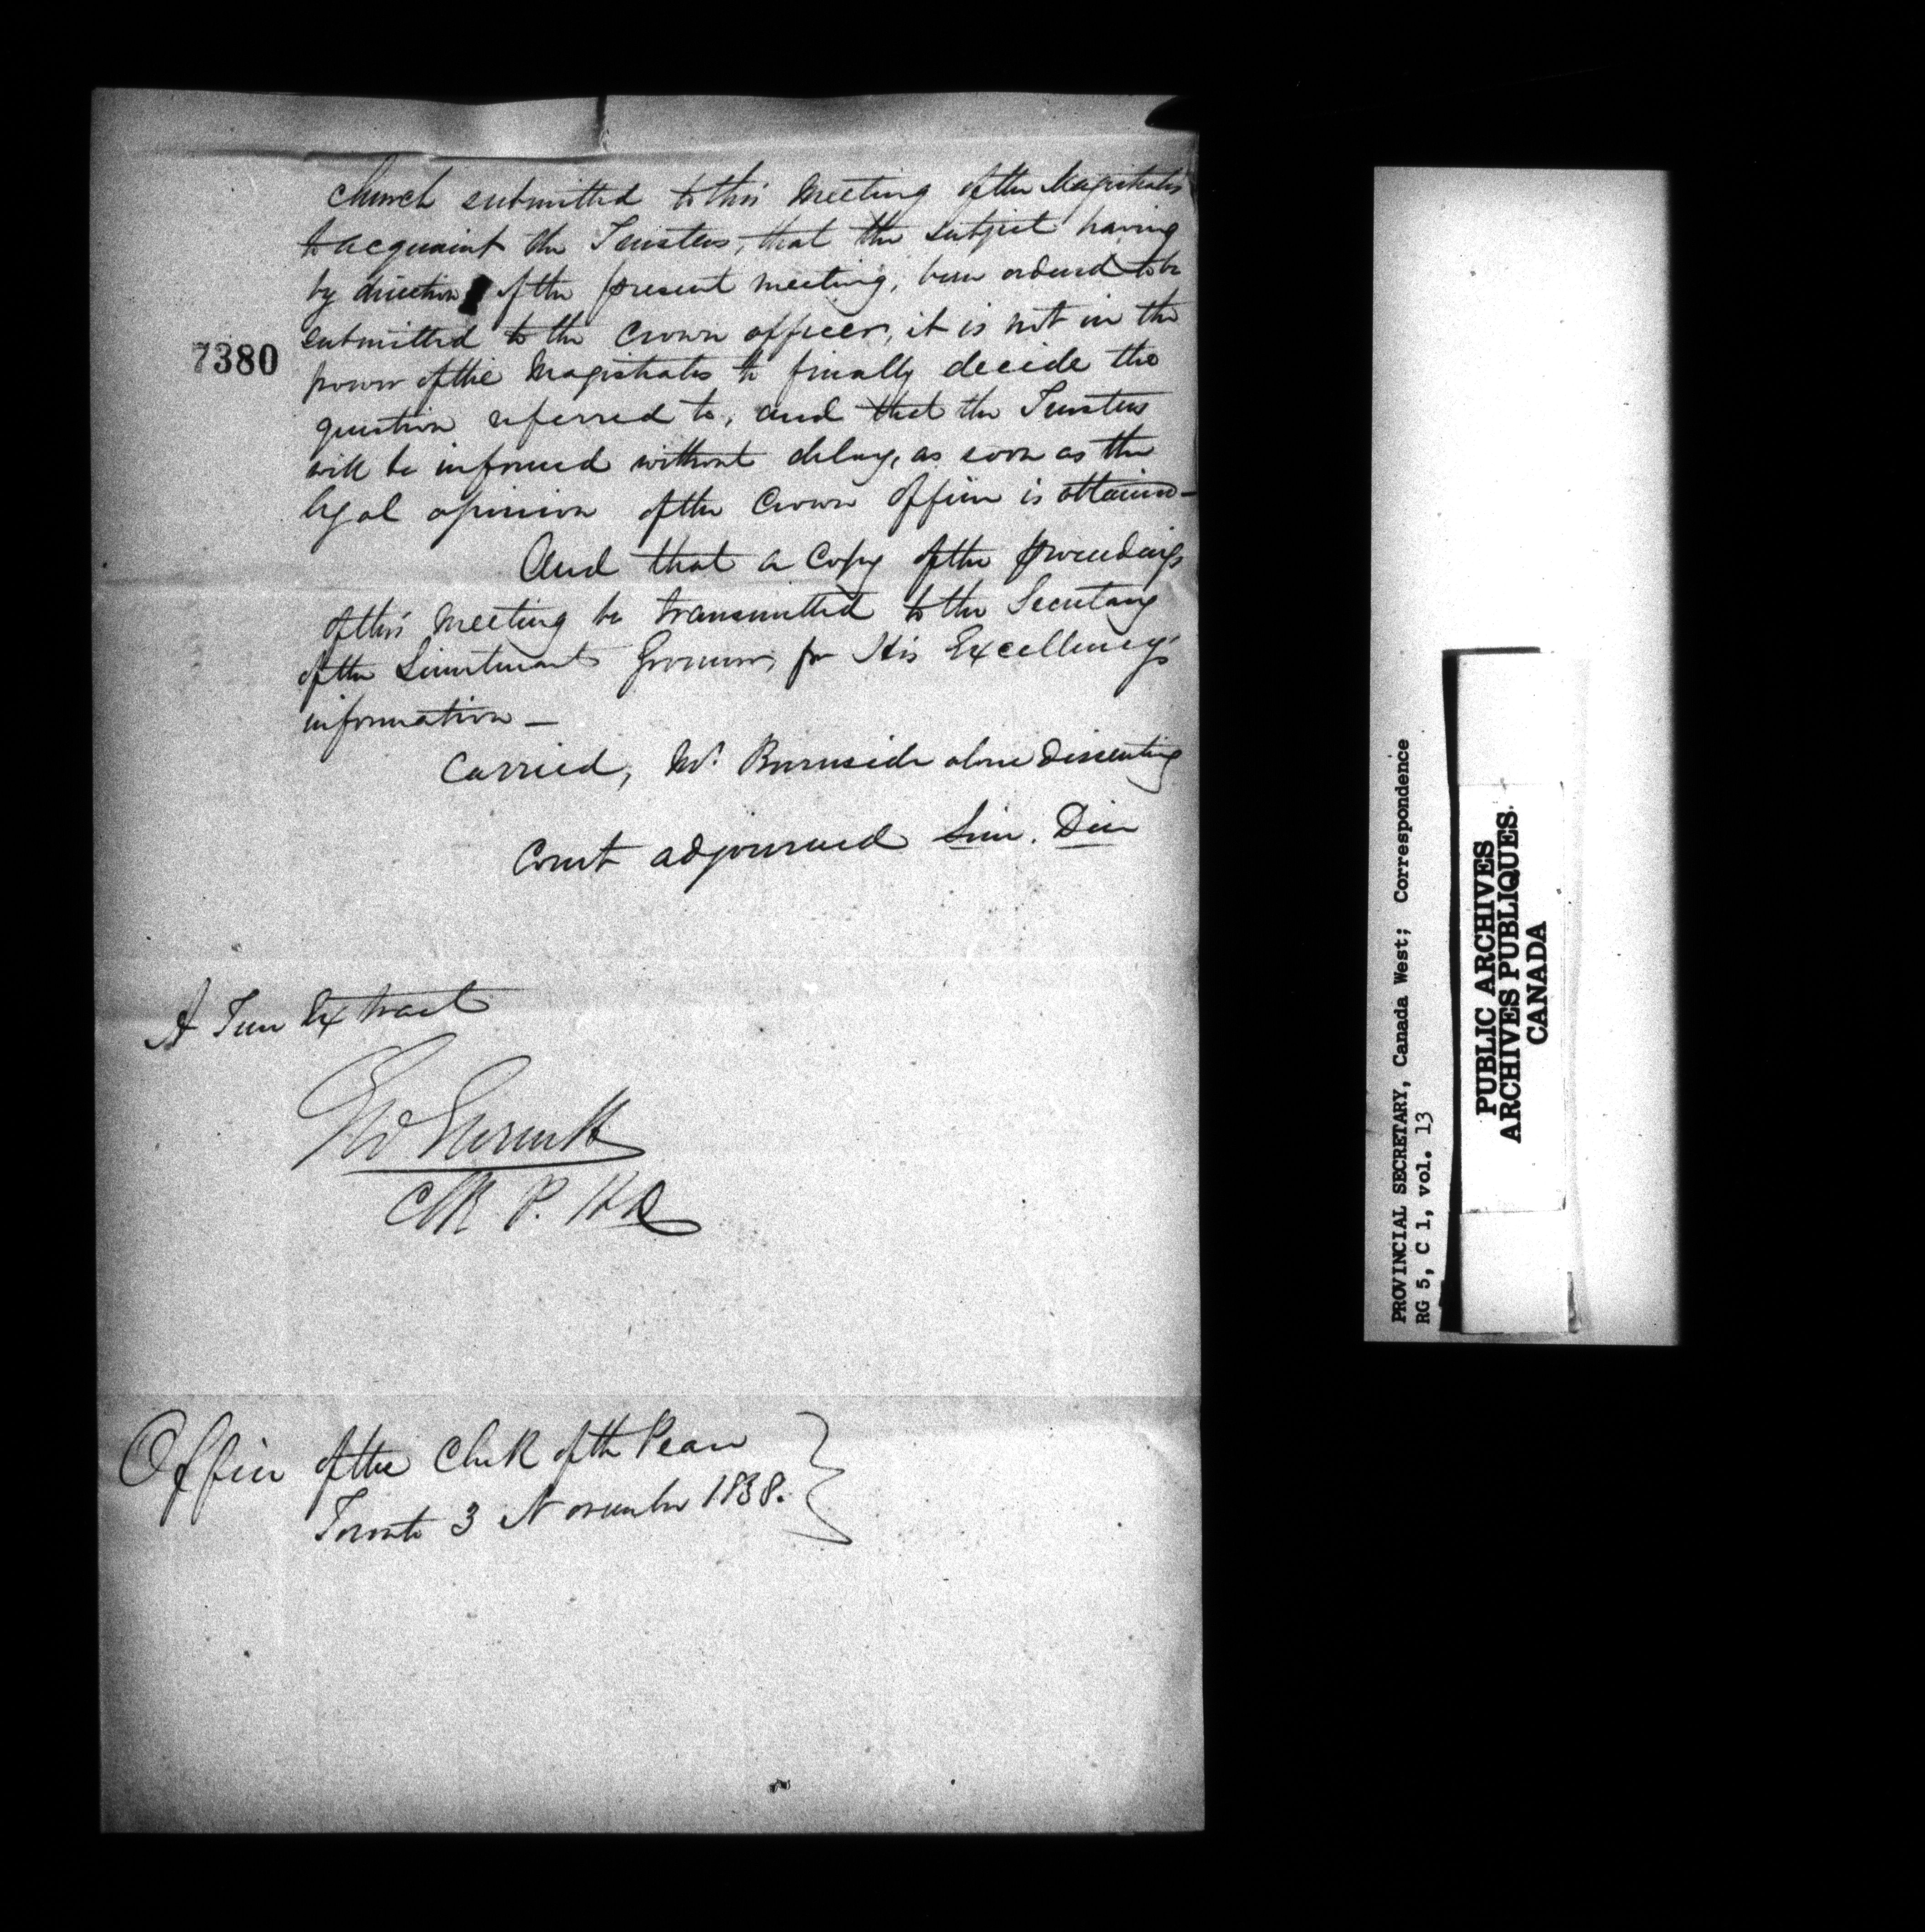 Church submitted to this Meeting of the Magistrates
to acquaint the Trustees, that the subject having
by direction of the present meeting, been ordered to be
submitted to the Crown officer, it is not in the
7380
power of the Magistrates to finally decide the
question referred to, and that the Trustees
will be informed without delay, as soon as the
legal opinion of the Crown Officer is attained—
And that a Copy of the proceedings
of this Meeting be transmitted to the Secretary
of the Lieutenant Governor, for His Excellency's
information —
Carried, Mr. Burnside alone Dissenting
Court adjourned Sine. Die
A True Extract
Clk P. HD
Office of the Clerk of the Peace
Toronto 3 November 1838.
PROVINCIAL SECRETARY, Canada West; Correspondence
RG 5, C 1, vol. 13
PUBLIC ARCHIVES
ARCHIVES PUBLIQUES
CANADA